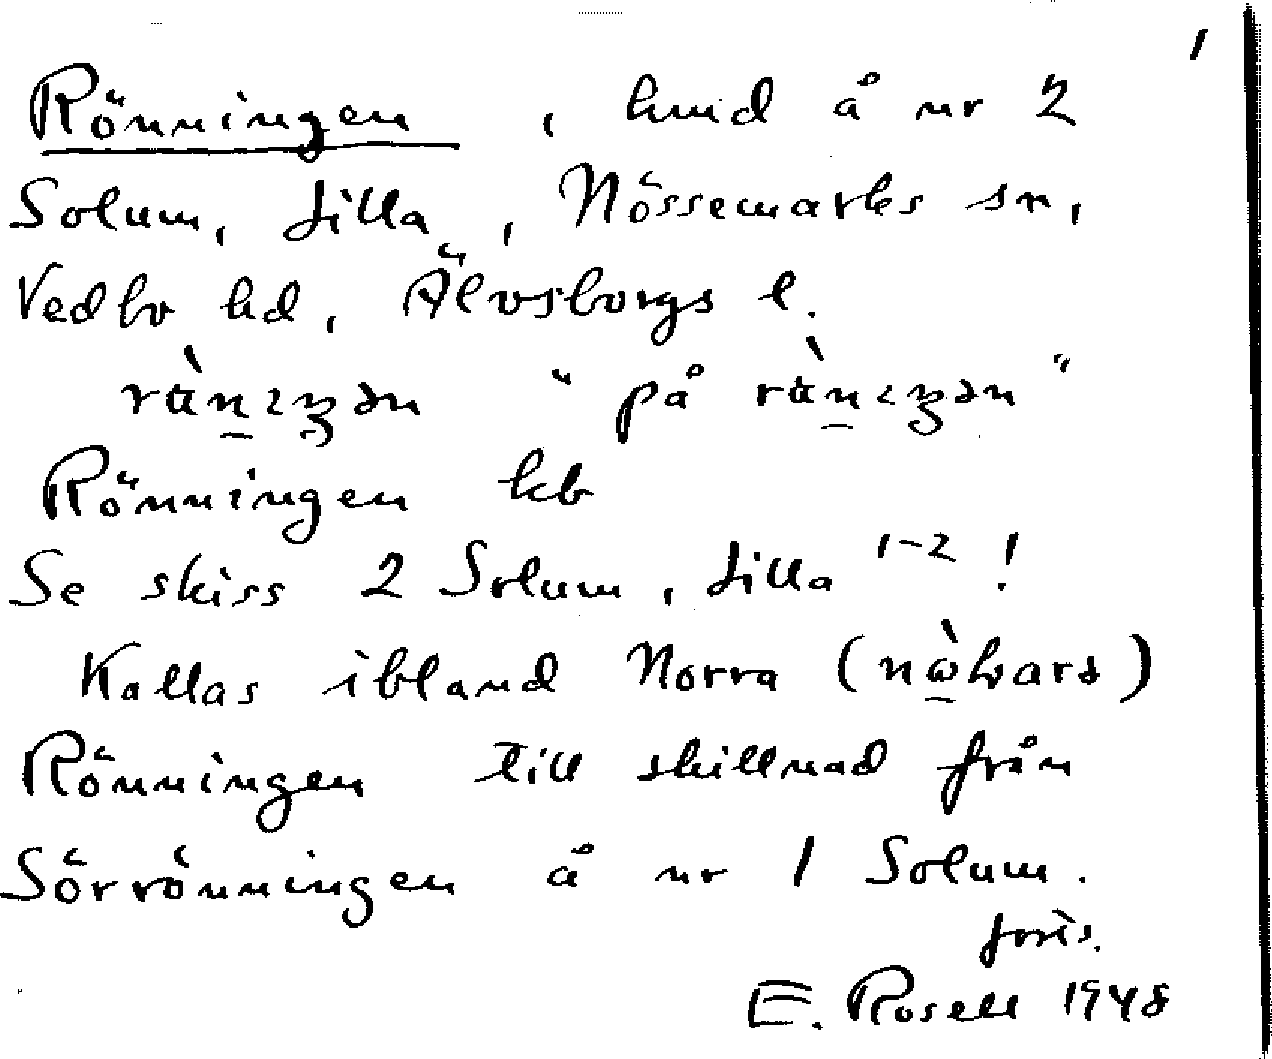 1
Rönningen, hmd å nr 2
Solum, Lilla, Nössemarks sn,
Vedbo hd, Älvsborgs l.
"på
Rönningen kb
Se skiss 2 Solum, Lilla 1-2!
Kallas ibland Norra
Rönningen till skillnad från
Sörrönningen å nr 1 Solum.
forts.
E. Rosell 1948